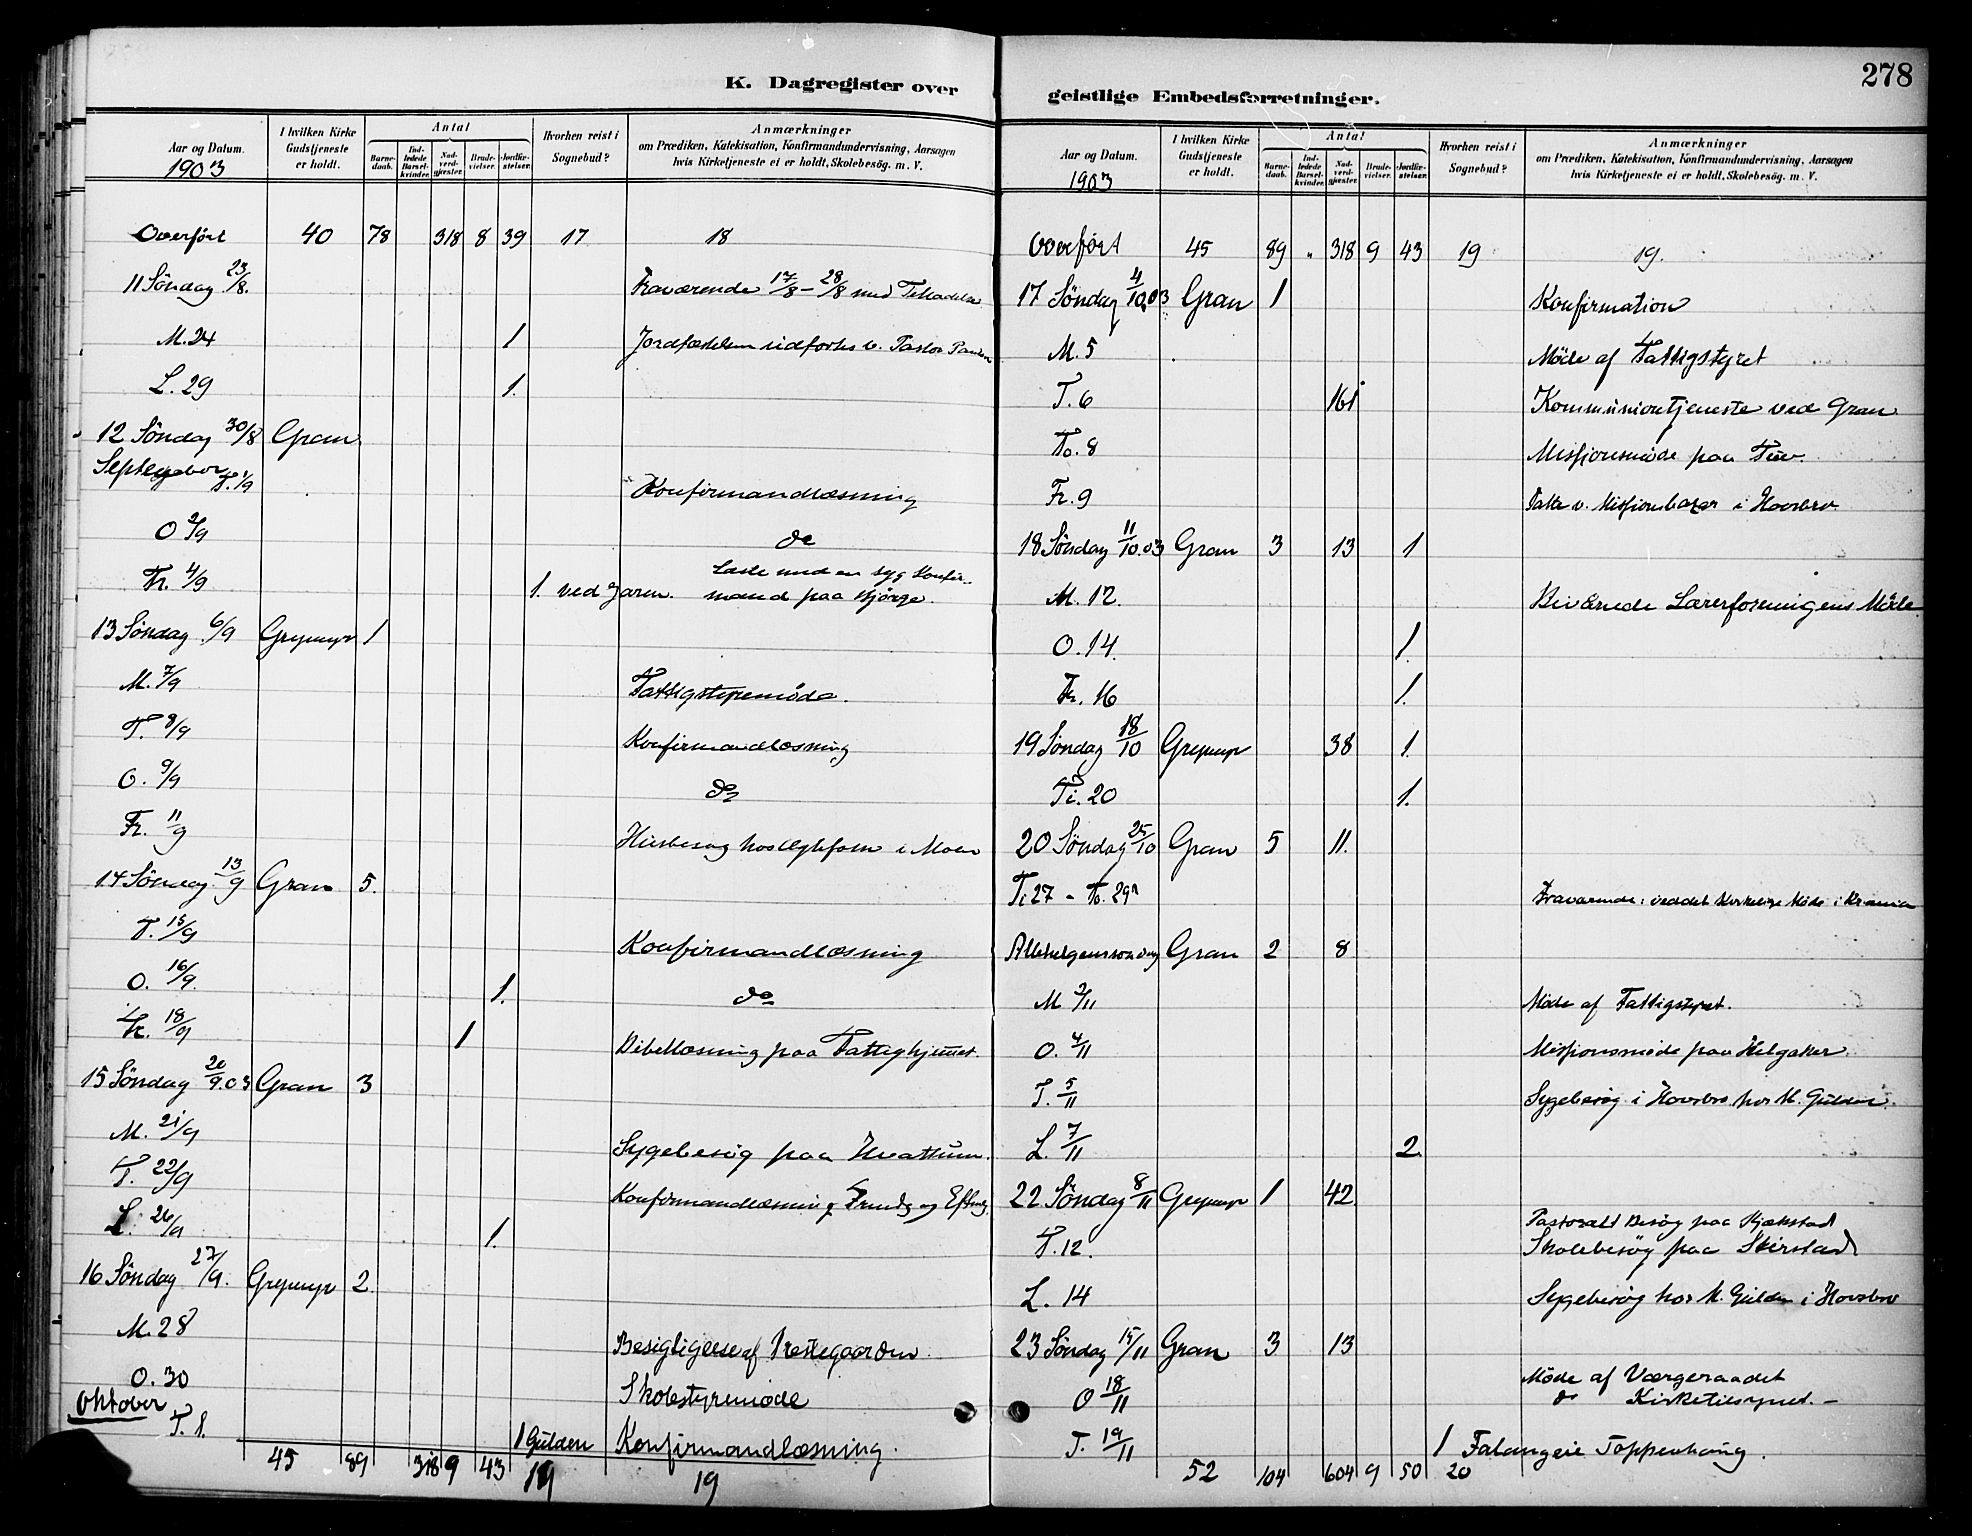 278
K. Dagregister over
Aar og Datum. 1903
I hvilken Kirke Gudstjeneste er holdt.
Antal
Barnedaab.
Indledede Barselkvinder.
Nadverdgjester.
Brudevielser.
Jordfæstelser.
Hvorhen reist i Sognebud?
Anmærkninger
om Prædiken, Katekisation, Konfirmandundervisning, Aarsagen
hvis Kirketjeneste ei er holdt, Skolebesög. m. V.
Overført 40 78 318 8 39 17 18
11 Söndag 23/8. Fraværende 17/8 - 28/8 med Tilladelse
M. 24 1 Jordfæstelsen udførtes v. Pastor
L. 29 1.
12 Söndag 30/8 Gran
September T. 1/9 Konfirmandlæsning
O 2/9 do
Fr. 4/9 1. ved Jaren. Læste med en syg Konfirmand paa Bjørge.
13 Söndag 6/9 Grymyr 1
M. 7/9 Fattigstyremöde.
T. 8/9 Konfirmandlæsning
O. 9/9 do
Fr. 11/9 Husbesøg hos Ægtefolk i Moen
14 Söndag 13/9 Gran 5.
T. 15/9 Konfirmandlæsning
O. 16/9. 1. do
Fr. 18/9 1 Bibellæsning paa Fattighjemmet.
15 Söndag 20/9.03 Gran 3
M. 21/9 Sygebesög paa Hvattum.
T. 22/9 Konfirmandlæsning Formdg og Eftmdg.
L. 26/9 1.
16 Söndag 27/9. Grymyr 2.
M. 28 Besigtigelse af Prestegaarden
O. 30 Skolestyremöde
Oktober T. 1. 1 Gulden Konfirmandlæsning.
45 89 318 9 43 19 19
geistlige Embedsforretninger.
Aar og Datum. 1903
I hvilken Kirke Gudstjeneste er holdt.
Antal
Barnedaab.
Indledede Barselkvinder.
Nadverdgjester.
Brudevielser.
Jordfæstelser.
Hvorhen reist i Sognebud?
Anmærkninger
om Prædiken, Katekisation, Konfirmandundervisning, Aarsagen
hvis Kirketjeneste ei er holdt, Skolebesög. m. V.
Overført 45 89 " 318 9 43 19 19.
17 Söndag 4/10.03 Gran 1 Konfirmation
M. 5 Möde af Fattigstyret
T. 6 161 Kommuniontjeneste ved Gran
To. 8 Missionsmöde paa Tuv.
Fr. 9 Takke v. Missionsbazar i Hovsbro
18 Söndag 11/10.03 Gran 3 13 1
M. 12. Bivånede Lærerforeningens Möde
O. 14. 1.
Fr. 16 1.
19 Söndag 18/10 Grymyr 38 1.
Ti. 20 1.
20 Söndag 25/10 Gran 5 11.
Ti 27 - To. 29 Fraværende: ved det kirkelige Möde i Kr.ania
Allehelgenssöndag Gran 2 8
M 2/11 Möde af Fattigstyret.
O. 4/11 Missionsmöde paa Helgaker
T. 5/11 Sygebesøg i Hovsbro hos M. Gulden.
L. 7/11 2.
22 Söndag 8/11 Grymyr 1 42.
T. 12. Pastoralt Besøg paa Kjækstad
Skolebesøg paa Skirstad
L. 14 Sygebesøg hos M. Gulden i Hovsbro
23 Söndag 15/11 Gran 3 13
O 18/11 Möde af Værgeraadet
do Kirketilsynet. -
T. 19/11 1 Falangeie Toppenhaug.
52 104 604 9 50 20